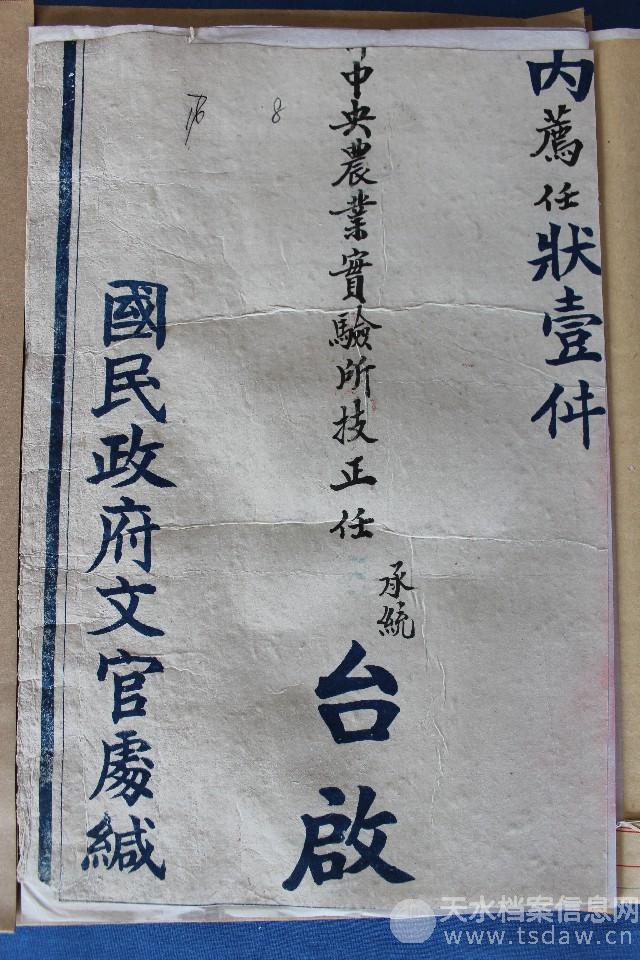 内薦任狀壹件
中央農業實驗所技正任
承統
台啟
國民政府文官處緘
8
天水档案信息网
www.tsdaw.cn